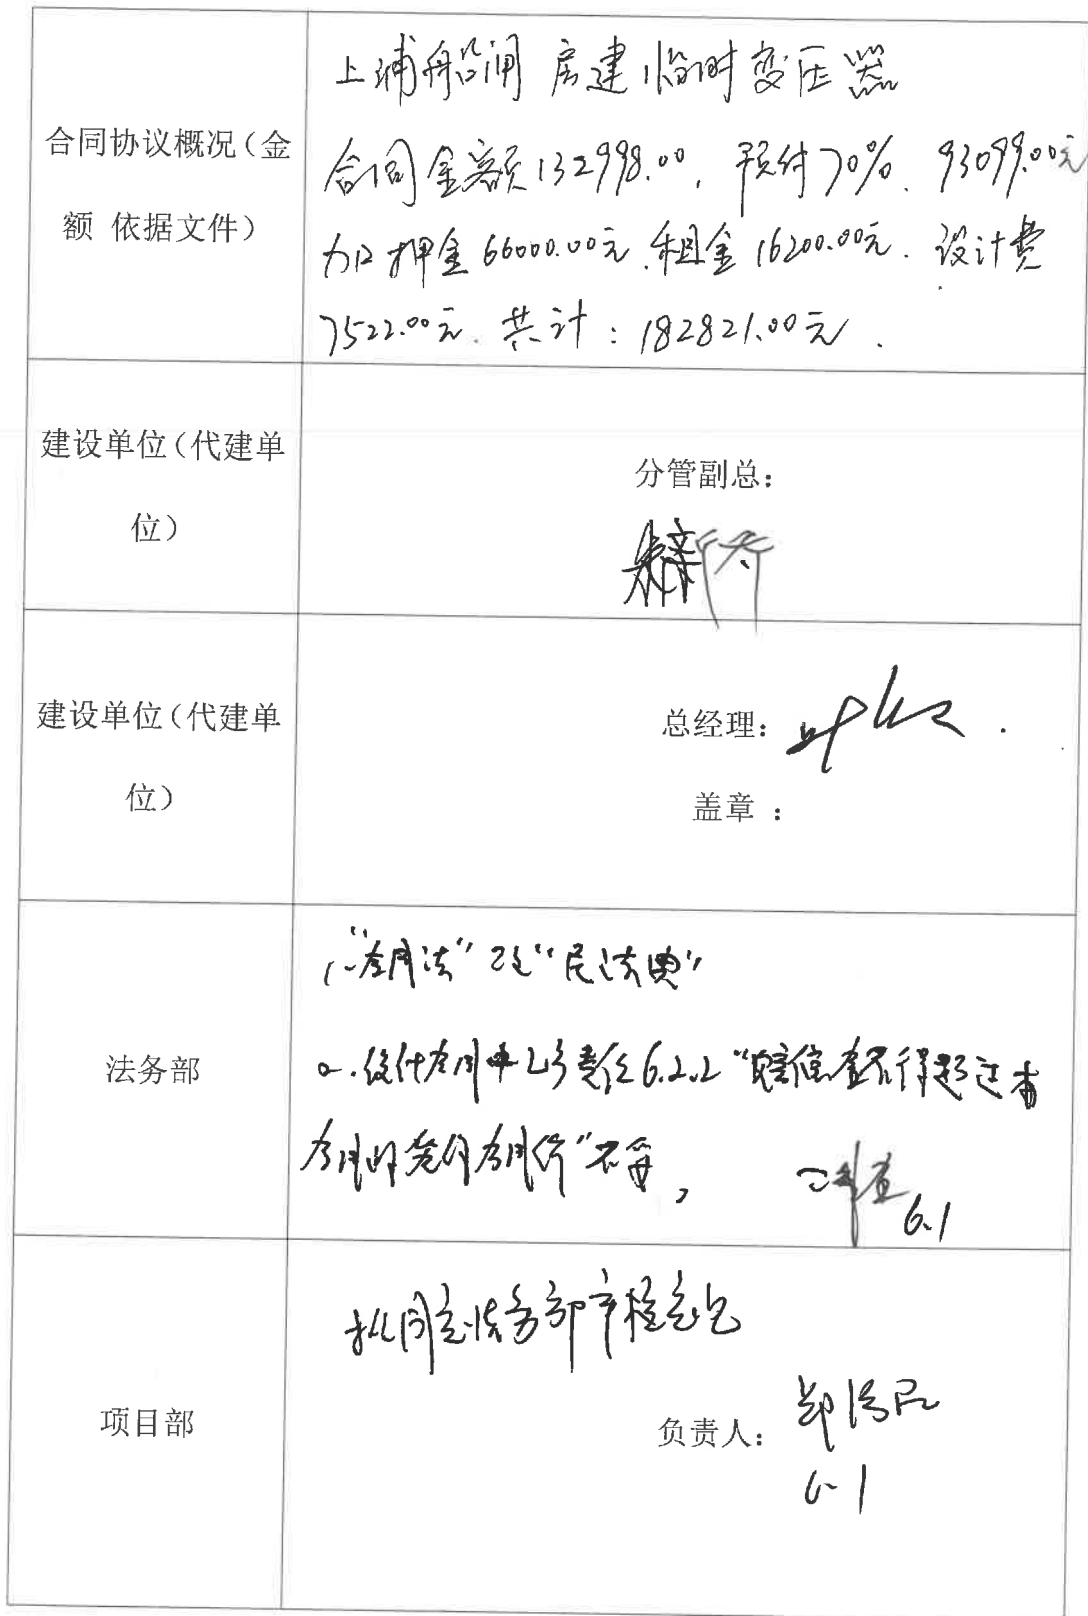 合同协议概况（金
额 依据文件）
上浦船闸房建临时变压器
合同金额132998.00，预付70%、93099.00元
加押金66000.00元、租金16200.00元、设计费
7522.00元、共计：182821.00元．
建设单位（代建单
位）
分管副总：
建设单位（代建单
位）
总经理：
盖章：
法务部
1、“合同法”改“民法典”
2、设计合同中 责任6.2.2“赔偿金不得超过本
合同的 合同价”不妥，
6.1
项目部
拟同意法务部审核意见
负责人：
6.1